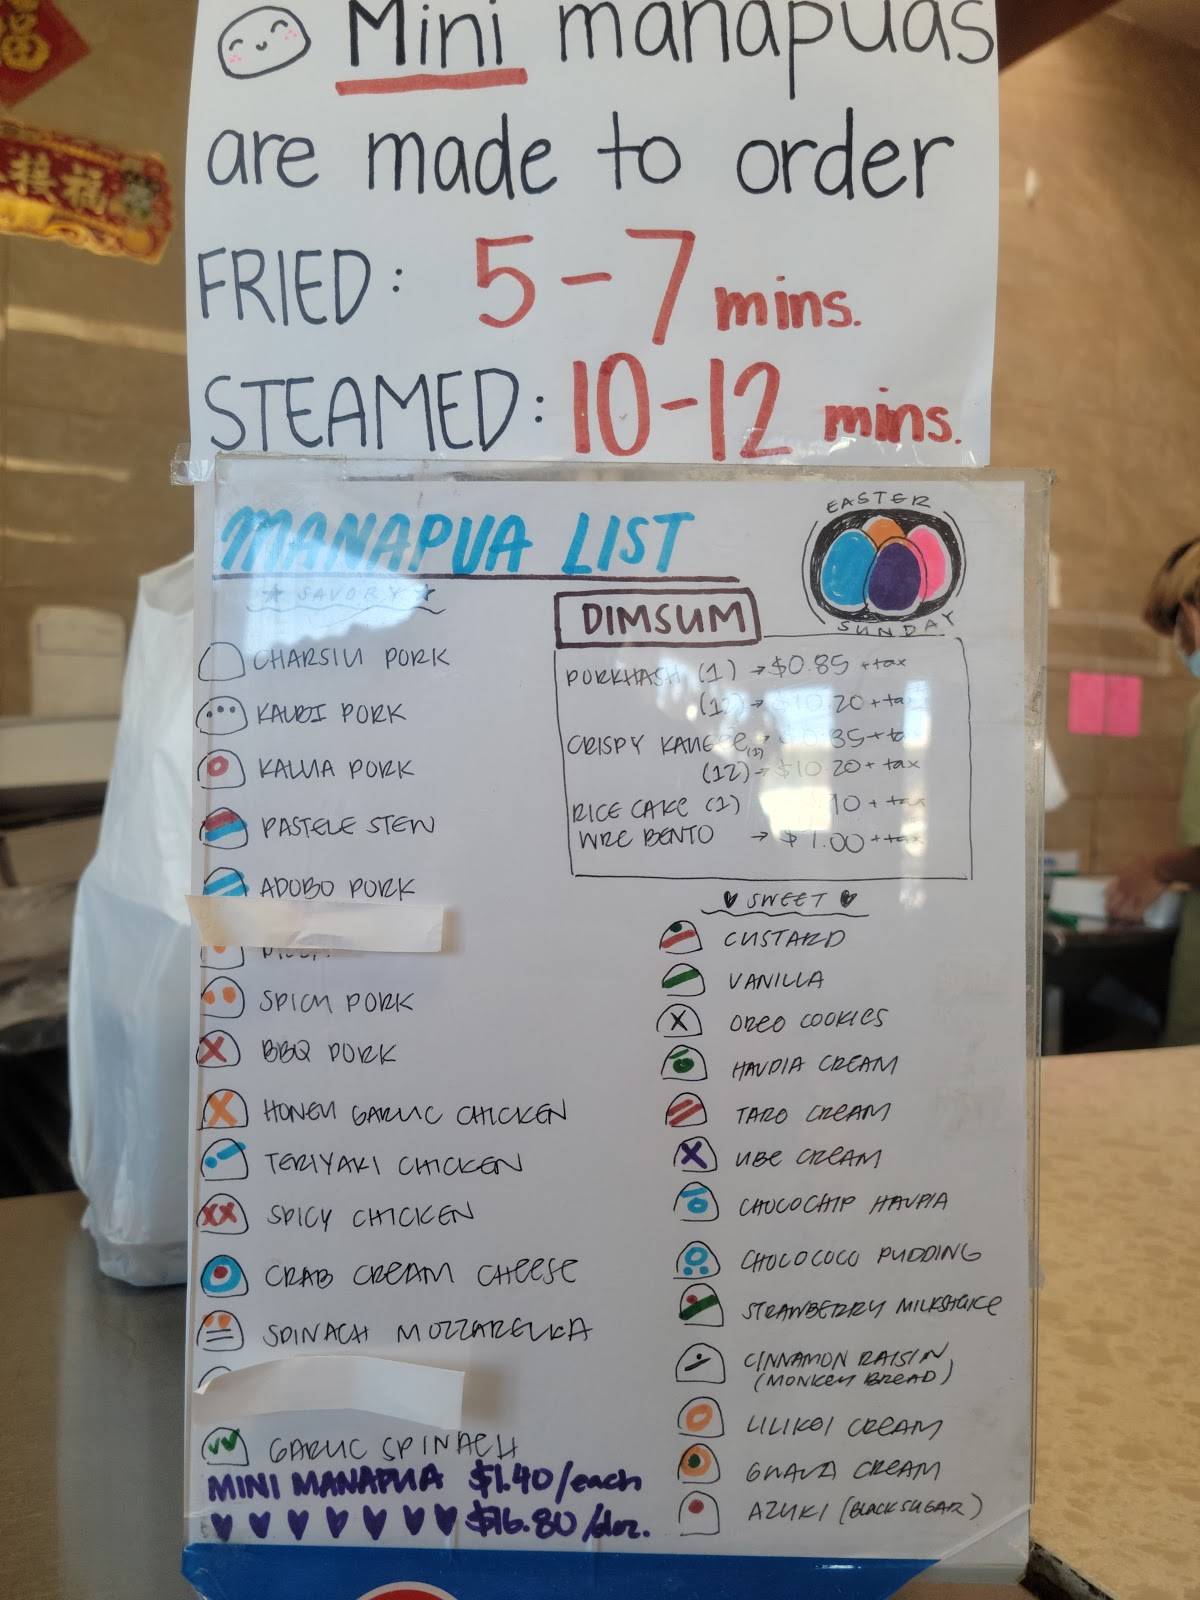 福
接福
Mini manapuas
are made to order
FRIED: 5-7 mins.
STEAMED: 10-12 mins.
MANAPUA LIST
EASTER
SUNDAY
SAVORY
CHARSIU PORK
KAUBI PORK
KALUA PORK
PASTELE STEW
ADOBO PORK
SPICY PORK
BBQ PORK
HONEY GARLIC CHICKEN
TERIYAKI CHICKEN
SPICY CHICKEN
CRAB CREAM CHEESE
SPINACH MOZZARELLA
GARLIC SPINACH
MINI MANAPUA $1.40/each
$16.80/doz.
DIMSUM
PORKHASH (1) → $0.85 + tax
(12) → $10.20 + tax
CRISPY (1) → $0.85 + tax
(12) → $10.20 + tax
RICE CAKE (1)
BENTO → $1.00 + tax
SWEET
CUSTARD
VANILLA
OREO COOKIES
HAUPIA CREAM
TARO CREAM
UBE CREAM
CHOCOCHIP HAUPIA
CHOCOCOCO PUDDING
STRAWBERRY MILKSHAKE
CINNAMON RAISIN
(MONKEY BREAD)
LILIKOI CREAM
GUAVA CREAM
AZUKI (BLACKSUGAR)